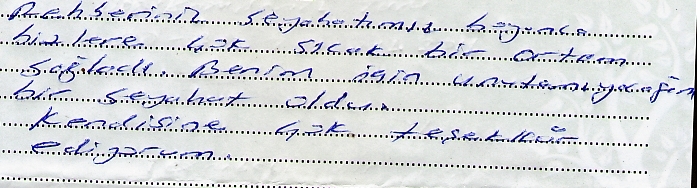 Rehberimiz seyahatımız boyunca
bizlere çok sıcak bir ortam
sağladı. Benim için unutamıyacağım
bir seyahat oldu.
Kendisine çok teşekkür
ediyorum.